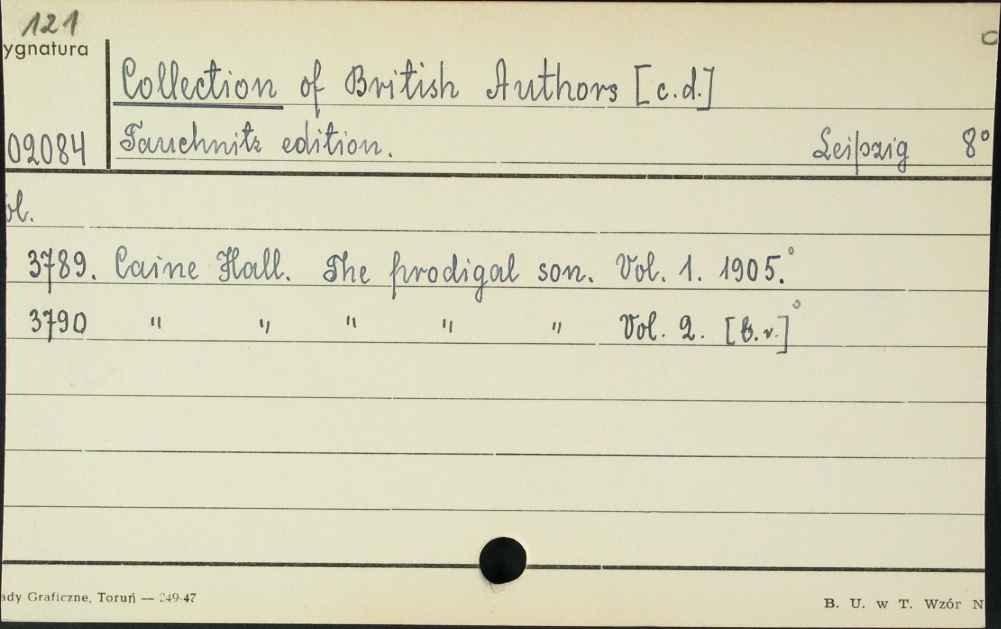 121
ygnatura
Collection of British Authors [c.d.]
02084 Tauchnitz edition. Leipzig 8°
ol.
3789. Caine Hall. The prodigal son. Vol. 1. 1905.°
3790 " " " " " Vol. 2. [b.r.]°
ady Graficzne, Toruń — 249-47
B. U. w T. Wzór N